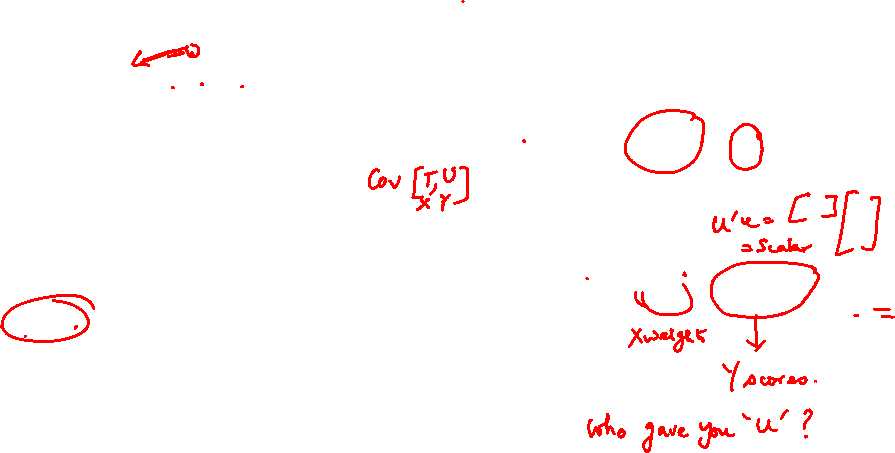 Cov [T, U]
X Y
u'u = [ ] [ ]
= Scalar
X weights
. =
Y scores.
Who gave you 'u' ?